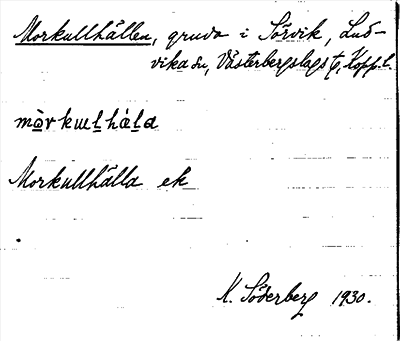 Morkullhällen, gruva i Sörvik, Lud-
vika sn, Västerbergslags t, Kopp. l.
mòrkulhàla
Morkullhälla ek
K. Söderberg 1930.